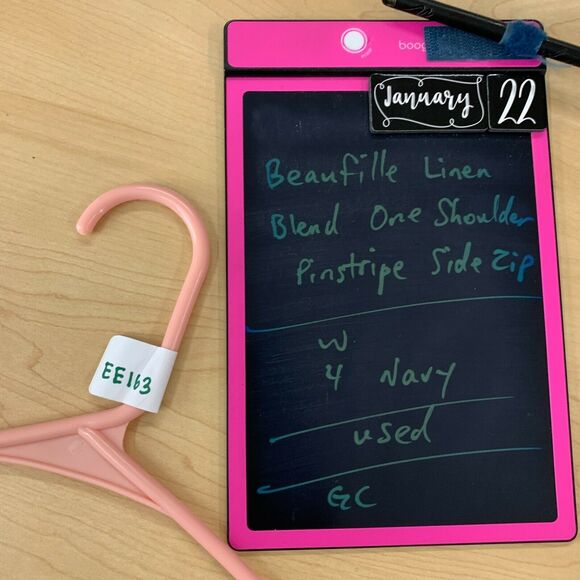 boog
January 22
Beaufille Linen
Blend One Shoulder
Pinstripe Side Zip
W
4 Navy
used
GC
EE163